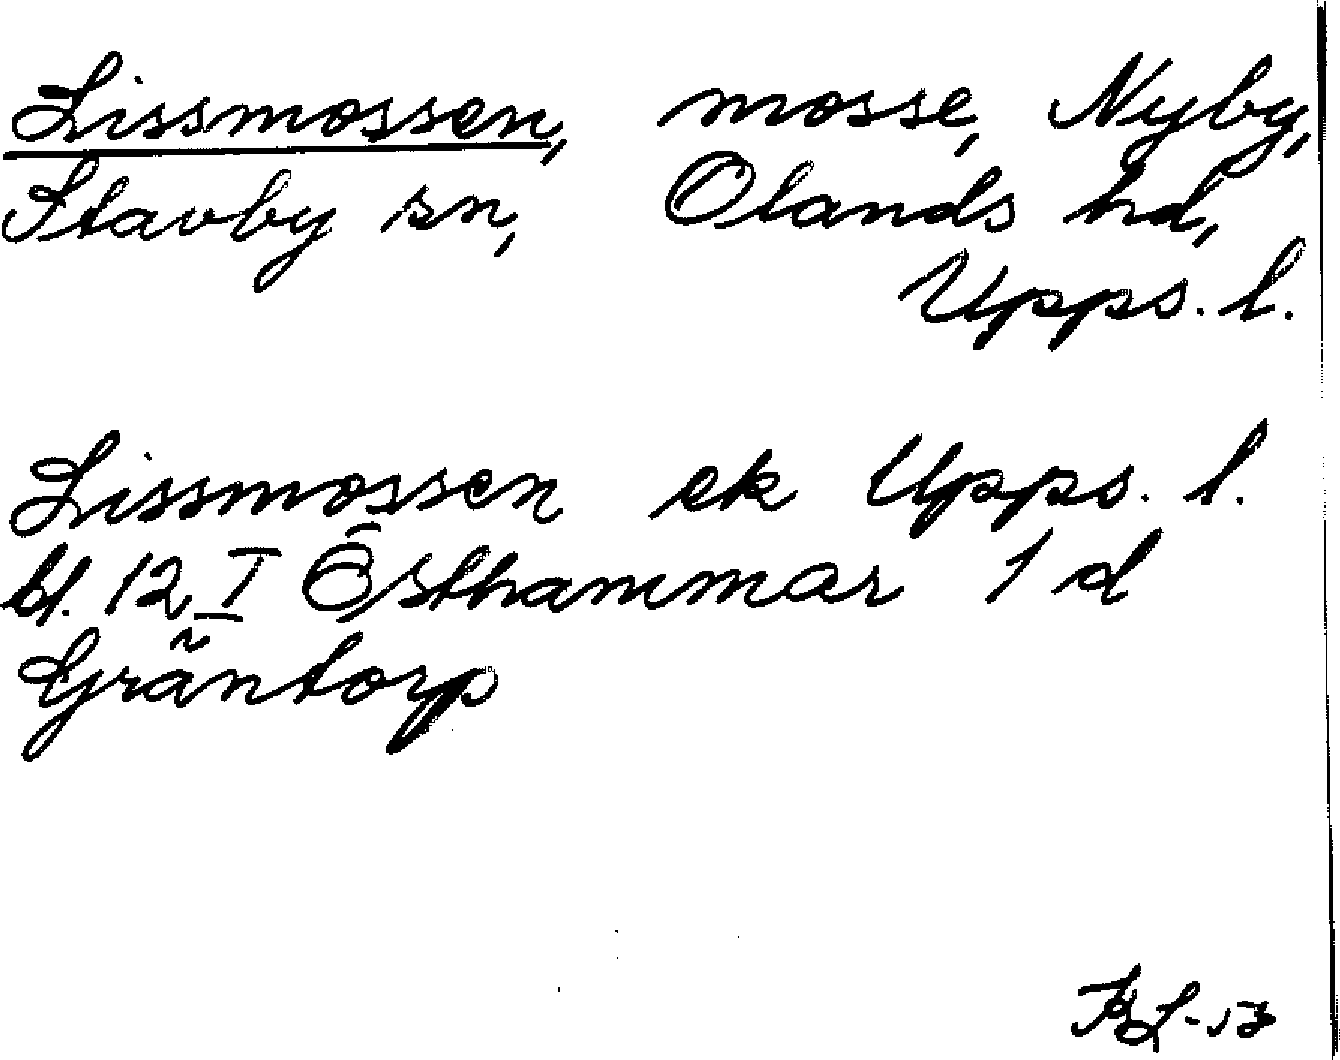 Lissmossen, mosse, Nyby,
Stavby sn, Olands hd,
Upps. l.
Lissmossen ek Upps. l.
bl. 12 I Östhammar 1 d
Gräntorp